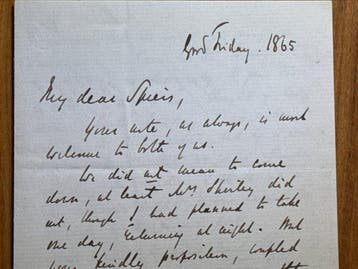 Good Friday. 1865
My dear Spiers,
Your note, as always, is most
welcome to both of us.
We did not mean to come
down, at least Mrs Shirley did
not, though I had planned to take
one day, returning at night. But
your kindly proposition, coupled